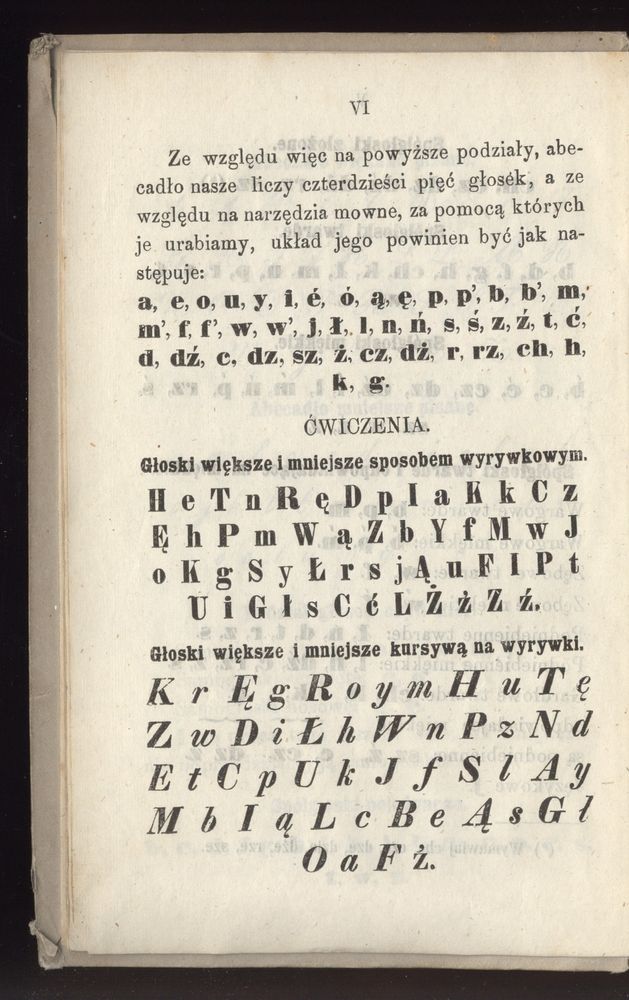 VI
Ze względu więc na powyższe podziały, abe-
cadło nasze liczy czterdzieści pięć głosek, a ze
względu na narzędzia mowne, za pomocą których
je urabiamy, układ jego powinien być jak na-
stępuje:
a, e, o, u, y, i, é, ó, ą, ę, p, p’, b, b’, m,
m’, f, f’, w, w’, j, ł, l, n, ń, s, ś, z, ź, t, ć,
d, dź, c, dz, sz, ż, cz, dż, r, rz, ch, h,
k, g.
ĆWICZENIA.
Głoski większe i mniejsze sposobem wyrywkowym.
H e T n R ę D p I a K k C z
Ę h P m W ą Z b Y f M w J
o K g S y Ł r s j Ą u F l P t
U i G ł s C ć L Ż ż Z ź.
Głoski większe i mniejsze kursywą na wyrywki.
K r Ę g R o y m H u T ę
Z w D i Ł h W n P z N d
E t C p U k J f S l A y
M b I ą L c B e Ą s G ł
O a F ż.